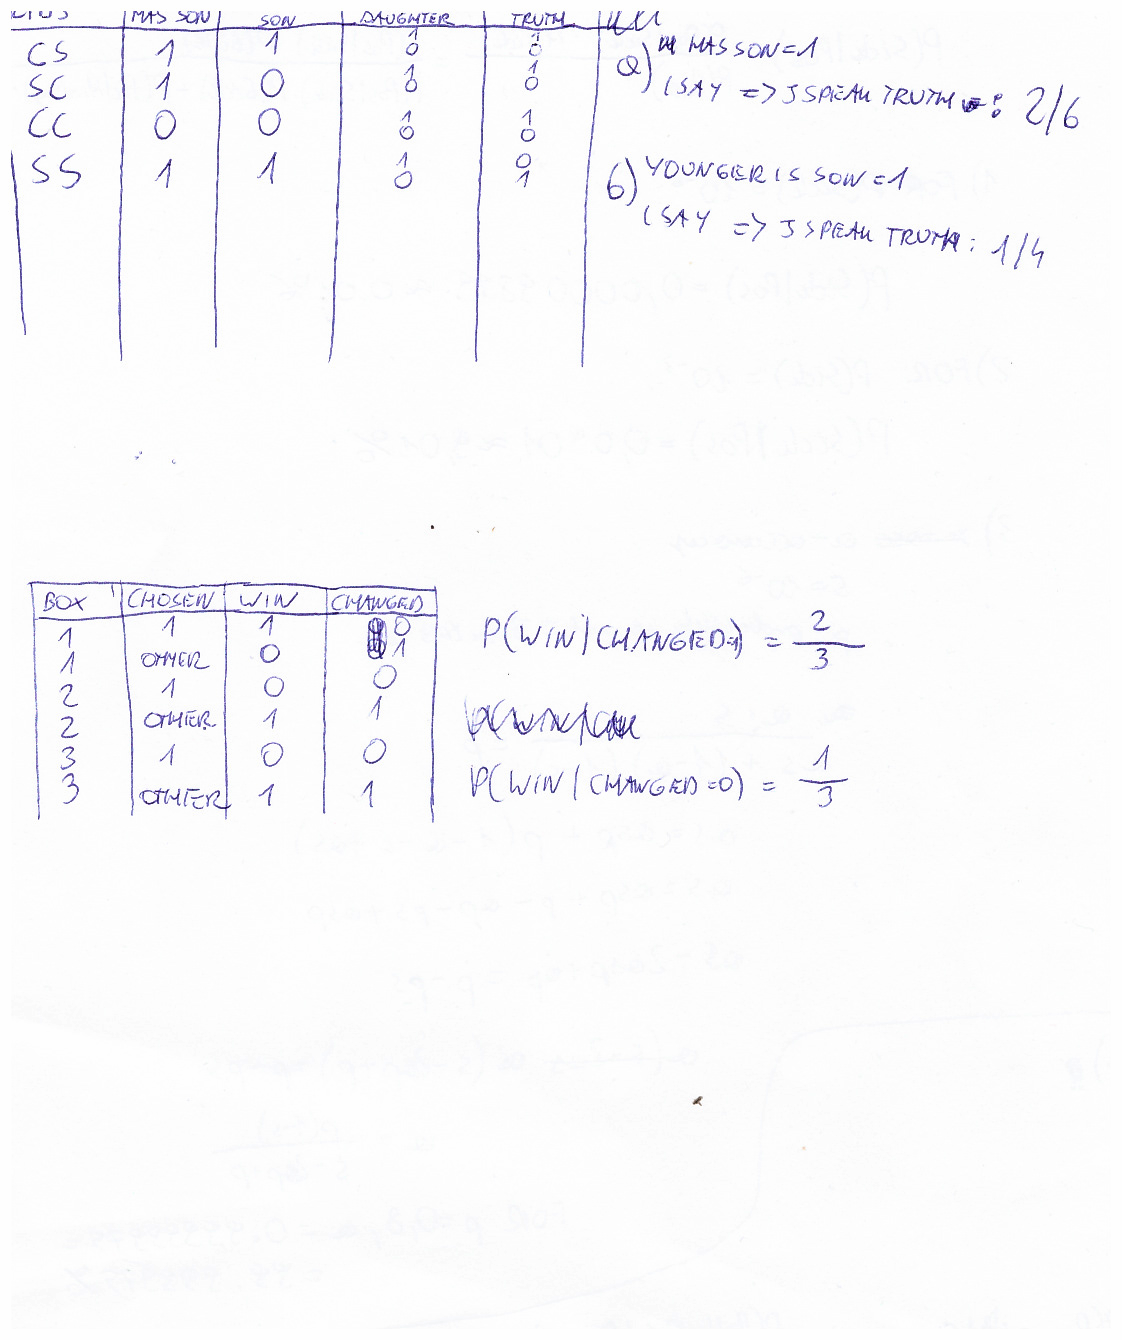 HAS SON SON DAUGHTER TRUTH
CS 1 1 1 0 1 0
SC 1 0 1 0 1 0
CC 0 0 1 0 1 0
SS 1 1 1 0 0 1
a) HAS SON = 1
I SAY => I SPEAK TRUTH : 2/6
b) YOUNGER IS SON = 1
I SAY => I SPEAK TRUTH : 1/4
BOX CHOSEN WIN CHANGED
1 1 1 0
1 OTHER 0 1
2 1 0 0
2 OTHER 1 1
3 1 0 0
3 OTHER 1 1
P(WIN | CHANGED=1) = 2/3
P(WIN | CHANGED=0) = 1/3